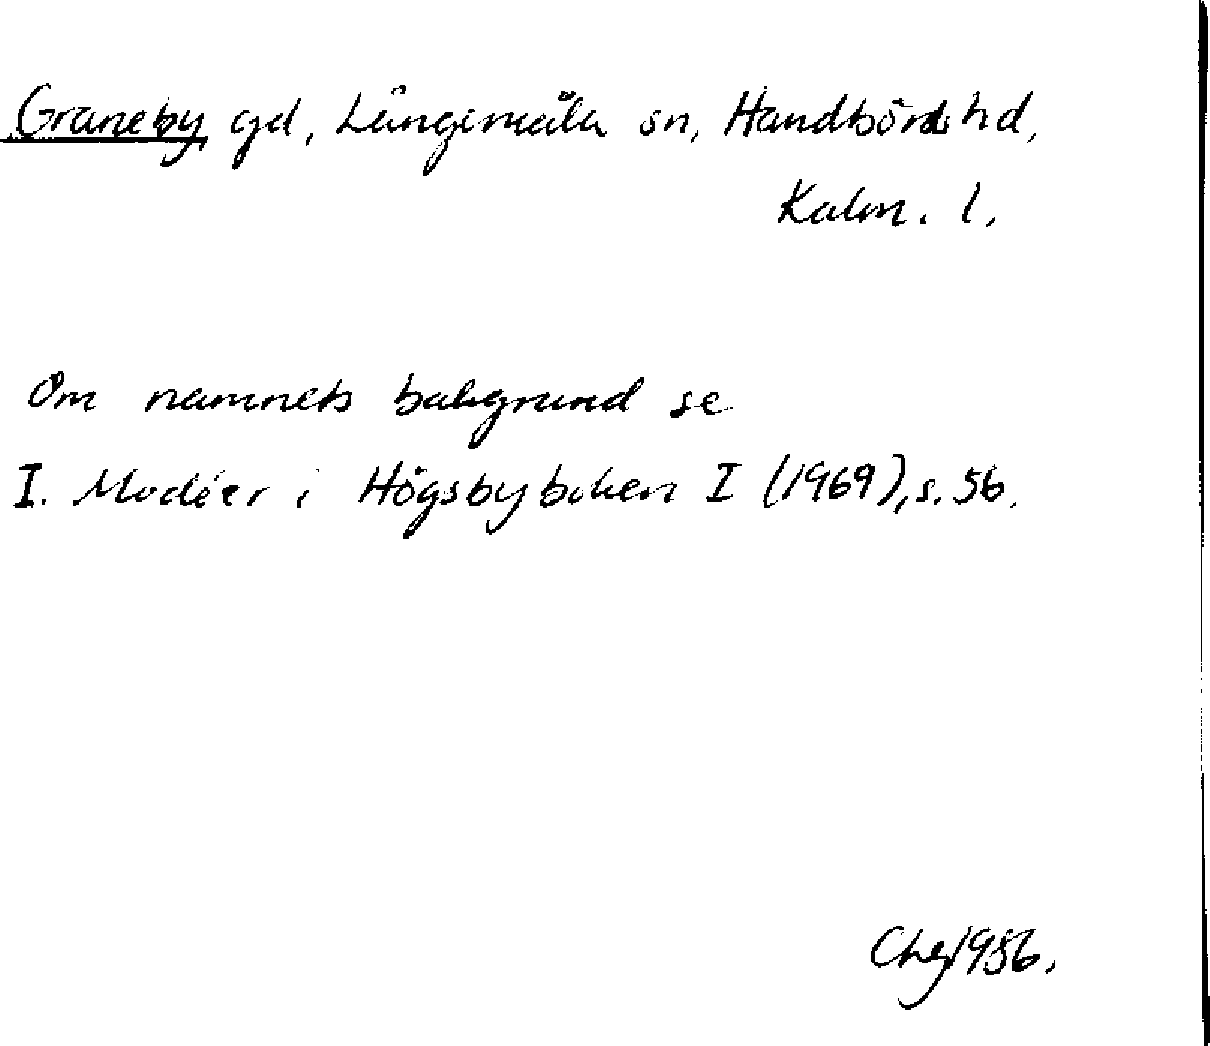 Graneby gd, Långemåla sn, Handbörds hd,
Kalm. l.
Om namnets bakgrund se
I. Modéer i Högsbyboken I (1969), s. 56.
1986.